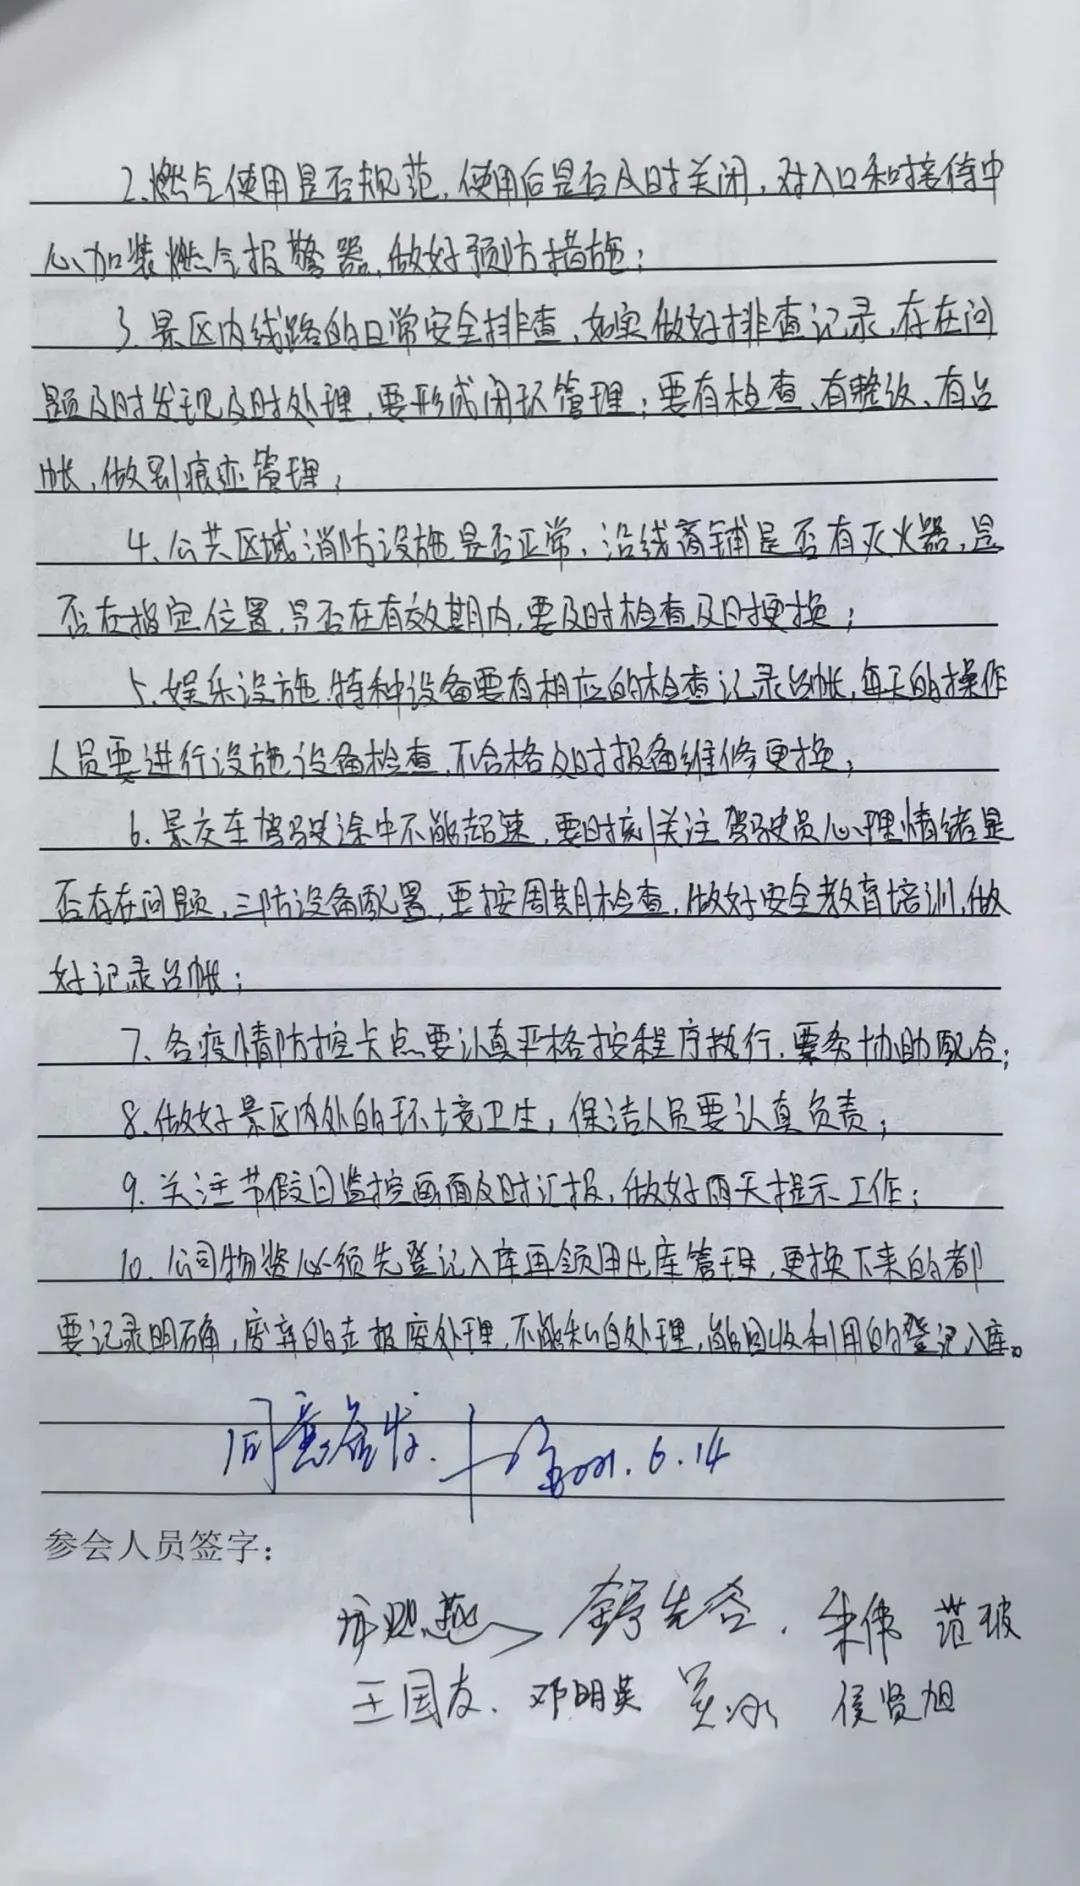 2.燃气使用是否规范,使用后是否及时关闭,对入口和接待中
心加装燃气报警器,做好预防措施;
3.景区内线路的日常安全排查,如实做好排查记录,存在问
题及时发现及时处理,要形成闭环管理;要有检查、有整改、有台
帐,做到痕迹管理;
4.公共区域消防设施是否正常,沿线商铺是否有灭火器,是
否在指定位置,是否在有效期内,要及时检查及时更换;
5.娱乐设施、特种设备要有相应的检查记录台帐,每天的操作
人员要进行设施设备检查,不合格及时报备维修更换;
6.景交车驾驶途中不能超速,要时刻关注驾驶员心理情绪是
否存在问题,三防设备配置,要按周期检查,做好安全教育培训,做
好记录台帐;
7、各疫情防控卡点要认真严格按程序执行,要务协助配合;
8.做好景区内外的环境卫生,保洁人员要认真负责;
9.关注节假日监控画面及时汇报,做好雨天提示工作;
10.公司物资必须先登记入库再领用出库管理,更换下来的都
要记录明确,废弃的走报废处理,不能私自处理,能回收利用的登记入库。
同意 2021.6.14
参会人员签字:
朱伟 范玻
王国友. 邓明英 侯贤旭